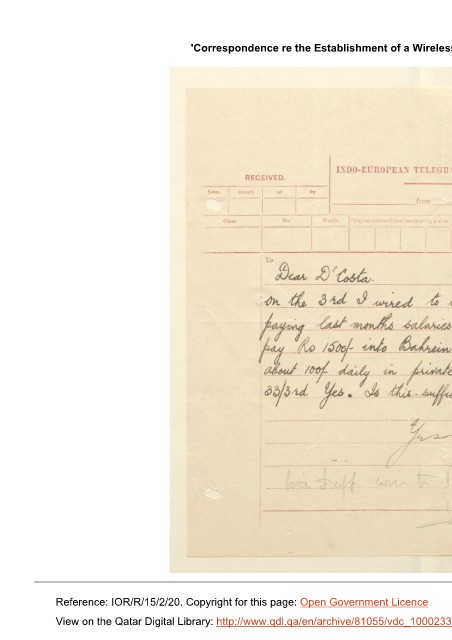 'Correspondence re the Establishment of a Wireless
INDO-EUROPEAN TELEGR
RECEIVED.
at
by
from
Class.
No.
Words.
To
Dear D'Costa.
on the 3rd I wired to
paying last months salaries
pay Rs 1500/- into Bahrein
about 100/- daily in private
33/3rd Yes. Is this suffi
Yes
wire to
Reference: IOR/R/15/2/20. Copyright for this page: Open Government Licence
View on the Qatar Digital Library: http://www.qdl.qa/en/archive/81055/vdc_1000233